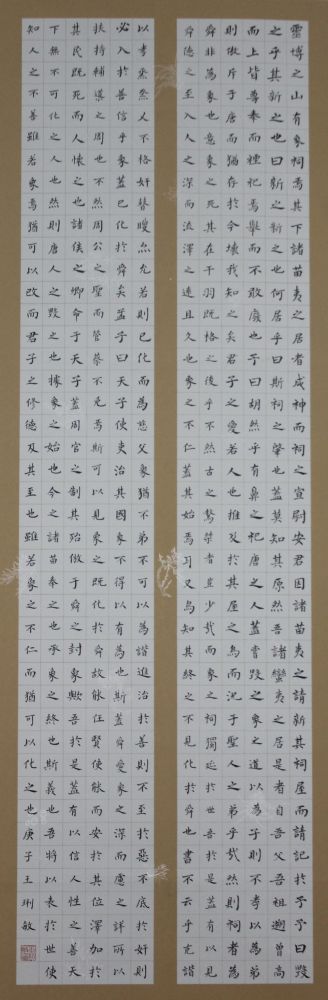 靈博之山有象祠焉其下諸苗夷之居者咸神而祠之宣尉安君因諸苗夷之請新其祠屋而請記於予予曰毀
之乎其新之也曰新之新之也何居乎曰斯祠之肇也蓋莫知其原然吾諸蠻夷之居是者自吾父吾祖遡曾高
而上皆尊奉而禋祀焉舉而不敢廢也予曰胡然乎有鼻之祀唐之人蓋嘗毀之象之道以為子則不孝以為弟
則傲斥于唐而猶存於今壞我知之矣君子之愛若人也推及於其屋之烏而況于聖人之弟乎哉然則祠者為
舜非為象也意象之死其在干羽既格之後乎不然古之驁桀者豈少哉而象之祠獨延於世吾於是蓋有以見
舜德之至入人之深而流澤之遠且久也象之不仁蓋其始焉耳又烏知其終之不見化於舜也書不云乎克諧
以孝烝烝乂不格奸瞽瞍亦允若則已化而為慈父象猶不弟不可以為諧進治於善則不至於惡不底於奸則
必入於善信乎象蓋已化於舜矣孟子曰天子使吏治其國象不得以有為也斯蓋舜愛象之深而慮之詳所以
扶持輔導之周也不然周公之聖而管蔡不免焉斯可以見象之既化於舜故能任賢使能而安於其位澤加於
其民既死而人懷之也諸侯之卿命于天子蓋周官之制其殆倣于舜之封象歟吾於是蓋有以信人性之善天
下無不可化之人也然則唐人之毀之也據象之始也今之諸苗奉之也承象之終也斯義也吾將以表於世使
知人之不善雖若象焉猶可以改而君子之修德及其至也雖若象之不仁而猶可以化之也庚子王琍敏